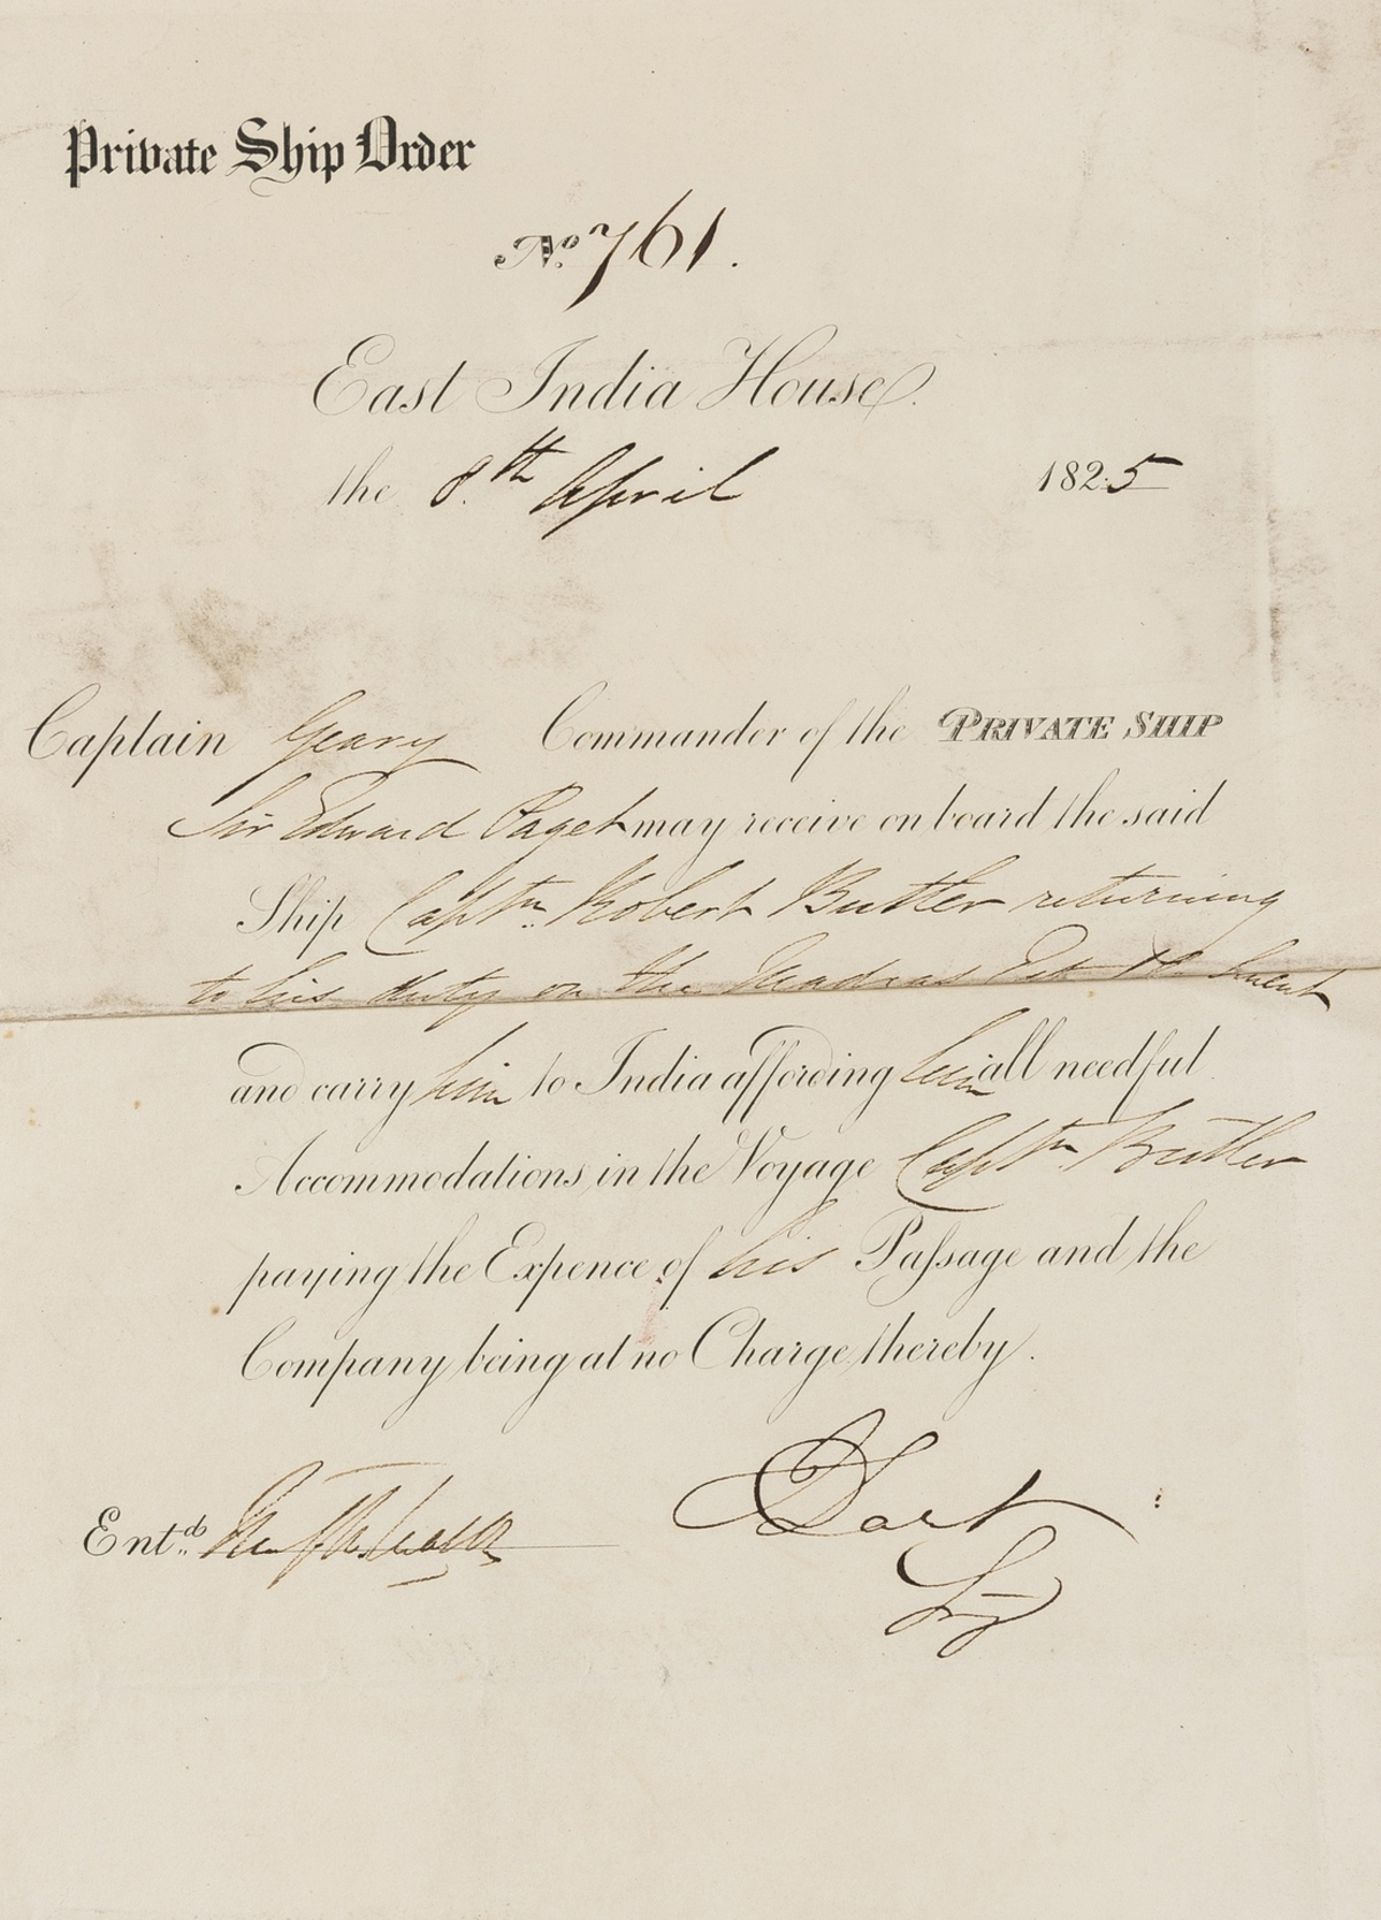 Private Ship Order
No. 761.
East India House.
the 8.th April 1825
Captain Geary Commander of the PRIVATE SHIP
Sir Edward Paget may receive on board the said
Ship Captn. Robert Butler returning
to his duty on the Madras Establishment
and carry him to India affording him all needful
Accommodations in the Voyage Captn. Butler
paying the Expence of his Passage and the
Company being at no Charge thereby.
Dart
Entd.